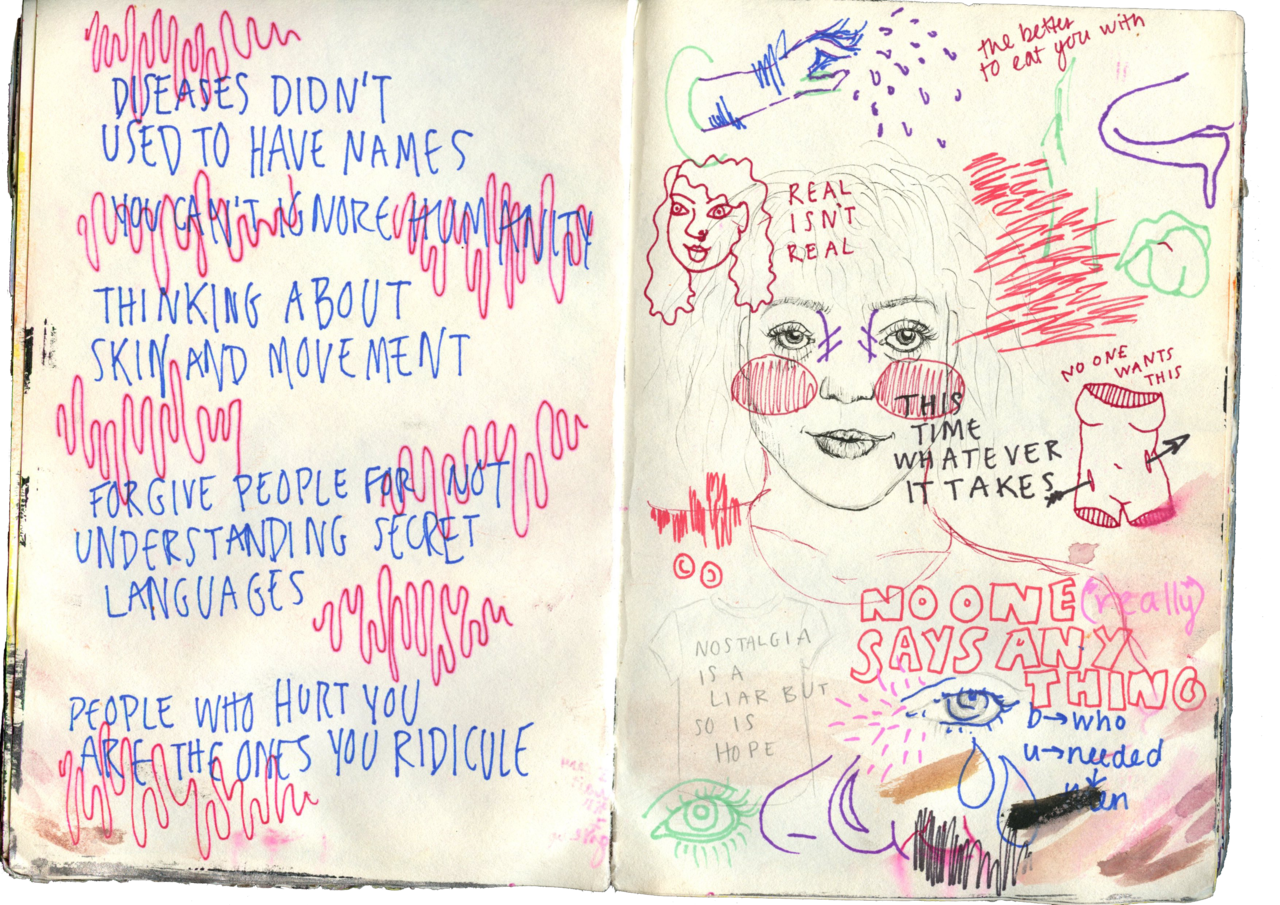 DISEASES DIDN'T
USED TO HAVE NAMES
YOU CAN'T IGNORE HUMANITY
THINKING ABOUT
SKIN AND MOVEMENT
FORGIVE PEOPLE FOR NOT
UNDERSTANDING SECRET
LANGUAGES
PEOPLE WHO HURT YOU
ARE THE ONES YOU RIDICULE
the better
to eat you with
REAL
ISN'T
REAL
NO ONE
WANTS
THIS
THIS
TIME
WHATEVER
IT TAKES
NO ONE (really)
SAYS ANY
THING
NOSTALGIA
IS A
LIAR BUT
SO IS
HOPE
b→who
u→needed